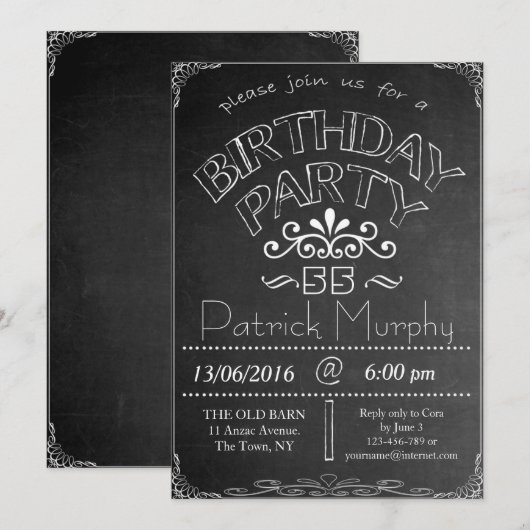 please join us for a
BIRTHDAY
PARTY
~ 55 ~
Patrick Murphy
13/06/2016 @ 6:00 pm
THE OLD BARN
11 Anzac Avenue.
The Town, NY
Reply only to Cora
by June 3
123-456-789 or
yourname@internet.com